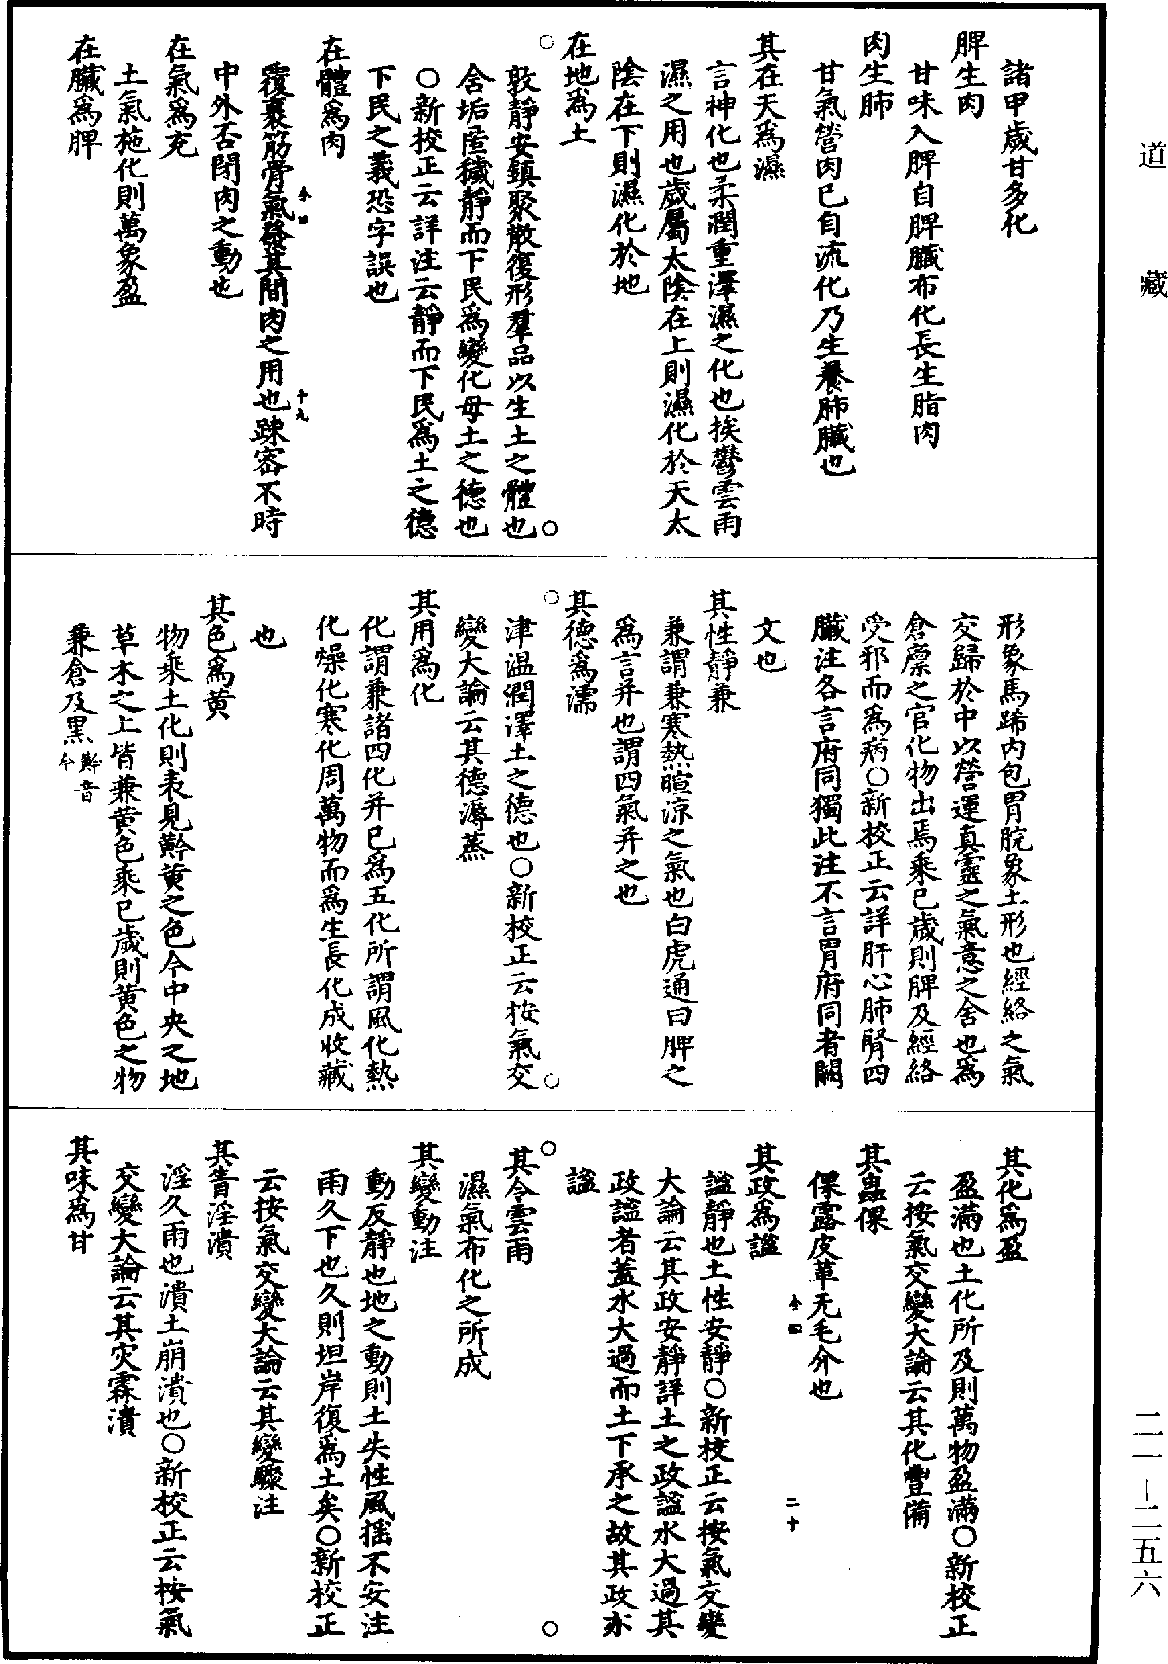 道藏
諸甲歲甘多化
脾生肉
甘味入脾自脾臟布化長生脂肉
肉生肺
甘氣營肉已自流化乃生養肺臟也
其在天爲濕
言神化也柔潤重澤濕之化也挨鬱雲雨
濕之用也歲屬太陰在上則濕化於天太
陰在下則濕化於地
在地爲土
敦靜安鎮聚散復形羣品以生土之體也
舍垢匿穢靜而下民爲變化母土之德也
○新校正云詳注云靜而下民爲土之德
下民之義恐字誤也
在體爲肉
仝四 十九
覆裹筋骨氣發其間肉之用也踈密不時
中外否閉肉之動也
在氣爲充
土氣施化則萬象盈
在臟爲脾
形象馬蹄内包胃脘象土形也經絡之氣
交歸於中以營運真靈之氣意之舍也爲
倉廪之官化物出焉乘己歲則脾及經絡
受邪而爲病○新校正云詳肝心肺腎四
臟注各言府同獨此注不言胃府同者闕
文也
其性靜兼
兼謂兼寒熱暄涼之氣也白虎通曰脾之
爲言并也謂四氣并之也
其德爲濡
津溫潤澤土之德也○新校正云按氣交
變大論云其德溽蒸
其用爲化
化謂兼諸四化并已爲五化所謂風化熱
化燥化寒化周萬物而爲生長化成收藏
也
其色爲黄
物乘土化則表見黅黄之色今中央之地
草木之上皆兼黄色乘己歲則黄色之物
兼倉及黑黅音今
其化爲盈
盈滿也土化所及則萬物盈滿○新校正
云按氣交變大論云其化豐備
其蟲倮
倮露皮革无毛介也
仝四 二十
其政爲謐
謐靜也土性安靜○新校正云按氣交變
大論云其政安靜詳土之政謐水大過其
政謐者蓋水大過而土下承之故其政亦
謐
其令雲雨
濕氣布化之所成
其變動注
動反靜也地之動則土失性風揺不安注
雨久下也久則坦岸復爲土矣○新校正
云按氣交變大論云其變驟注
其眚淫潰
淫久雨也潰土崩潰也○新校正云按氣
交變大論云其灾霖潰
其味爲甘
二一—二五六